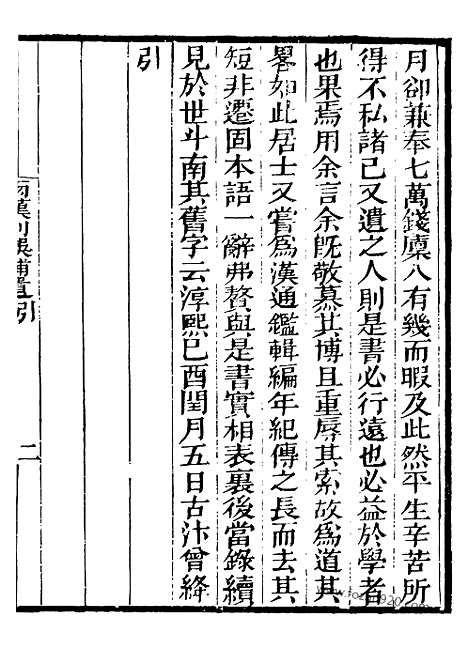 月卻兼奉七萬錢廩八有幾而暇及此然平生辛苦所
得不私諸己又遺之人則是書必行遠也必益於學者
也果焉用余言余旣敬慕其博且重辱其索故爲道其
畧如此居士又嘗爲漢通鑑輯編年紀傳之長而去其
短非遷固本語一辭弗贅與是書實相表裏後當錄續
見於世斗南其舊字云淳熙己酉閏月五日古汴曾絳
引
兩漢刊誤補遺引
二